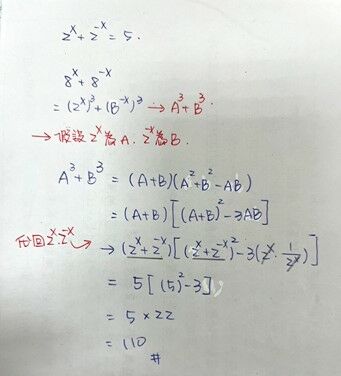 2^x + 2^-x = 5.
8^x + 8^-x
= (2^x)^3 + (B^-x)^3 → A^3 + B^3.
→ 假設 2^x 為 A. 2^-x 為 B.
A^3 + B^3 = (A+B)(A^2 + B^2 - AB)
= (A+B)[(A+B)^2 - 3AB]
代回 2^x. 2^-x → (2^x + 2^-x)[(2^x + 2^-x)^2 - 3(2^x · 1/2^x)]
= 5[(5)^2 - 3]
= 5 × 22
= 110
#